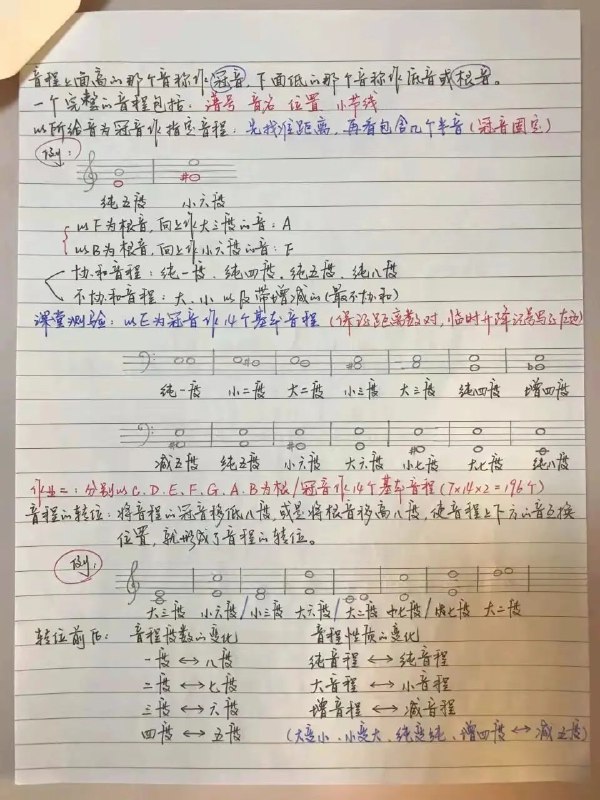 音程上面高的那个音称作冠音,下面低的那个音称作底音或根音。
一个完整的音程包括: 谱号 音名 位置 小节线
以所给音为冠音作指定音程: 先找准距离,再看包含几个半音(冠音固定)
例:
纯五度 小六度
以F为根音,向上作大三度的音: A
以B为根音,向上作小六度的音: F
协和音程: 纯一度、纯四度、纯五度、纯八度
不协和音程: 大、小以及带增减的(最不协和)
课堂测验: 以E为冠音作14个基本音程 (保证距离数对,临时升降记号写在左边)
纯一度 小二度 大二度 小三度 大三度 纯四度 增四度
减五度 纯五度 小六度 大六度 小七度 大七度 纯八度
作业二: 分别以C、D、E、F、G、A、B为根/冠音作14个基本音程 (7×14×2=196个)
音程的转位: 将音程的冠音移低八度,或是将根音移高八度,使音程上下方的音互换
位置,就形成了音程的转位。
例:
大三度 小六度/小三度 大六度/大二度 小七度/小七度 大二度
转位前后: 音程度数的变化 音程性质的变化
一度 ↔ 八度 纯音程 ↔ 纯音程
二度 ↔ 七度 大音程 ↔ 小音程
三度 ↔ 六度 增音程 ↔ 减音程
四度 ↔ 五度 (大变小、小变大、纯变纯、增四度 ↔ 减五度)